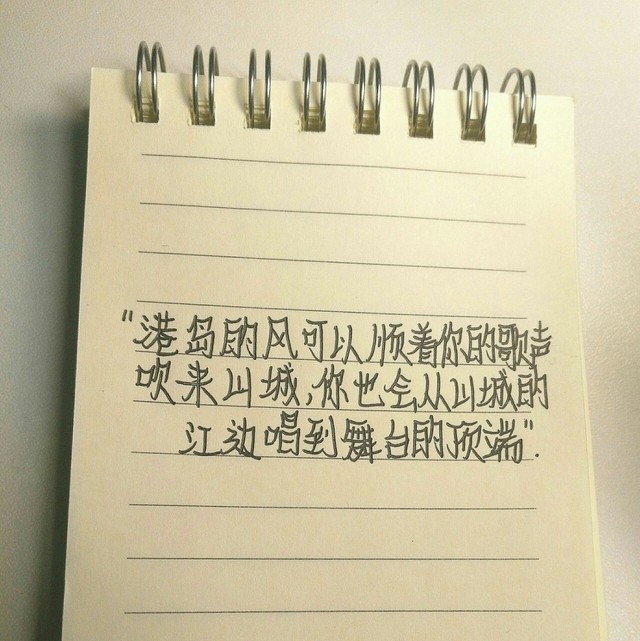 "港岛的风可以顺着你的歌声
吹来山城,你也会从山城的
江边唱到舞台的顶端".